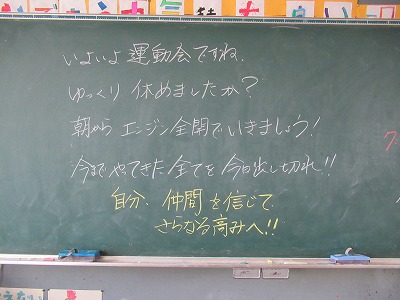 いよいよ運動会ですね。
ゆっくり休めましたか?
朝からエンジン全開でいきましょう!
今までやってきた全てを今日出し切れ!!
自分、仲間を信じて
さらなる高みへ!!